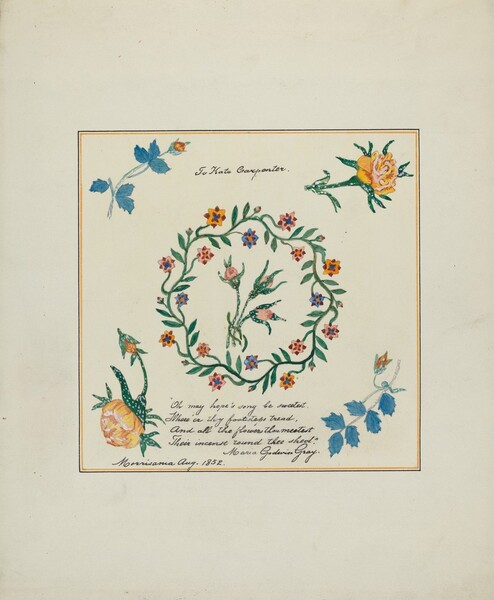 To Kate Carpenter.
"Oh may hope's song be sweetest.
Where'er thy footsteps tread,
And all the flowers thou meetest
Their incense round thee shed."
Maria Godwin Gray.
Morrisania Aug. 1852.